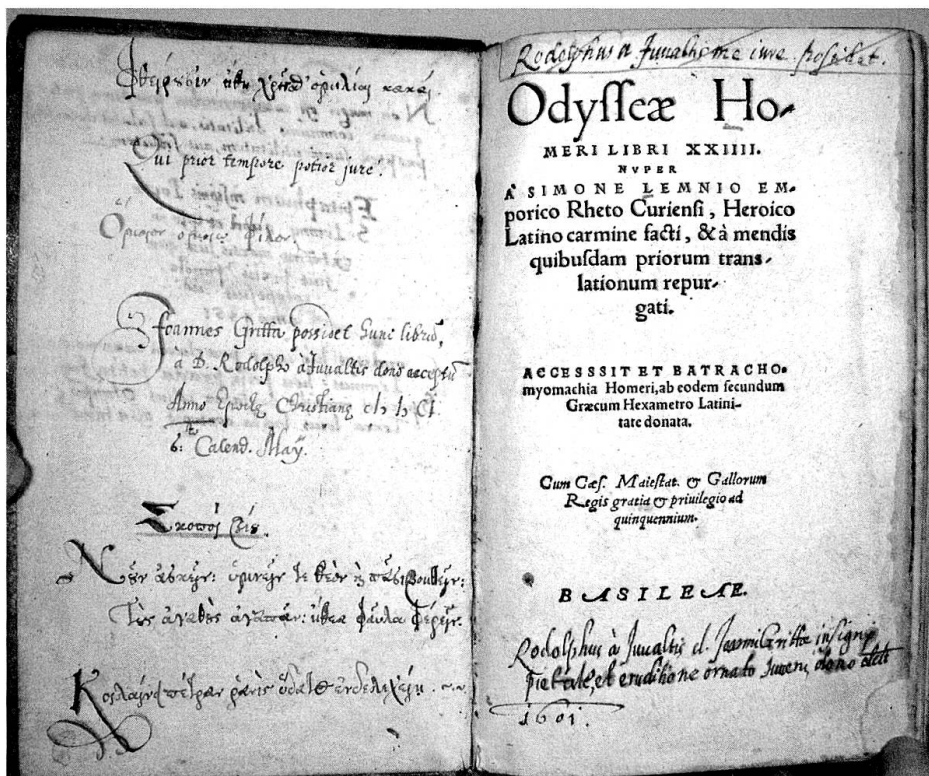 Φθείρουσιν ἤθη χρῆσθ᾽ ὁμιλίαι κακαί.
Qui prior tempore potior jure.
Ὅμοιον ὁμοίῳ φίλον.
Joannes Gritta possidet hunc librū,
à D. Rodolpho à Juvaltis dono acceptū
Anno Christianę
6. Calend. Maij.
Σκοποὶ βίȣ.
Νȣ͂ν ἀσκεῖν: ὑμνεῖν τε θεὸν πᾶσι βοηθεῖν:
Τȣ̀ς ἀγαθȣ̀ς ἀγαπᾶν: ἤθεα φαῦλα φέρειν.
Κοιλαίνει πέτραν ῥανὶς ὕδατος ἐνδελεχείῃ.
Rodolphus a Juvaltis me iure possidet.
Odyſſeæ Ho-
MERI LIBRI XXIIII.
NVPER
A' SIMONE LEMNIO EM-
porico Rheto Curienſi, Heroico
Latino carmine facti, & à mendis
quibuſdam priorum trans-
lationum repur-
gati.
ACCESSSIT ET BATRACHO-
myomachia Homeri, ab eodem ſecundum
Græcum Hexametro Latini-
tate donata.
Cum Cæſ. Maieſtat. & Gallorum
Regis gratia & priuilegio ad
quinquennium.
BASILEAE.
Rodolphus à Juvaltis d. insigni
pietate, et eruditione ornato Juveni, dono dedit
1601.